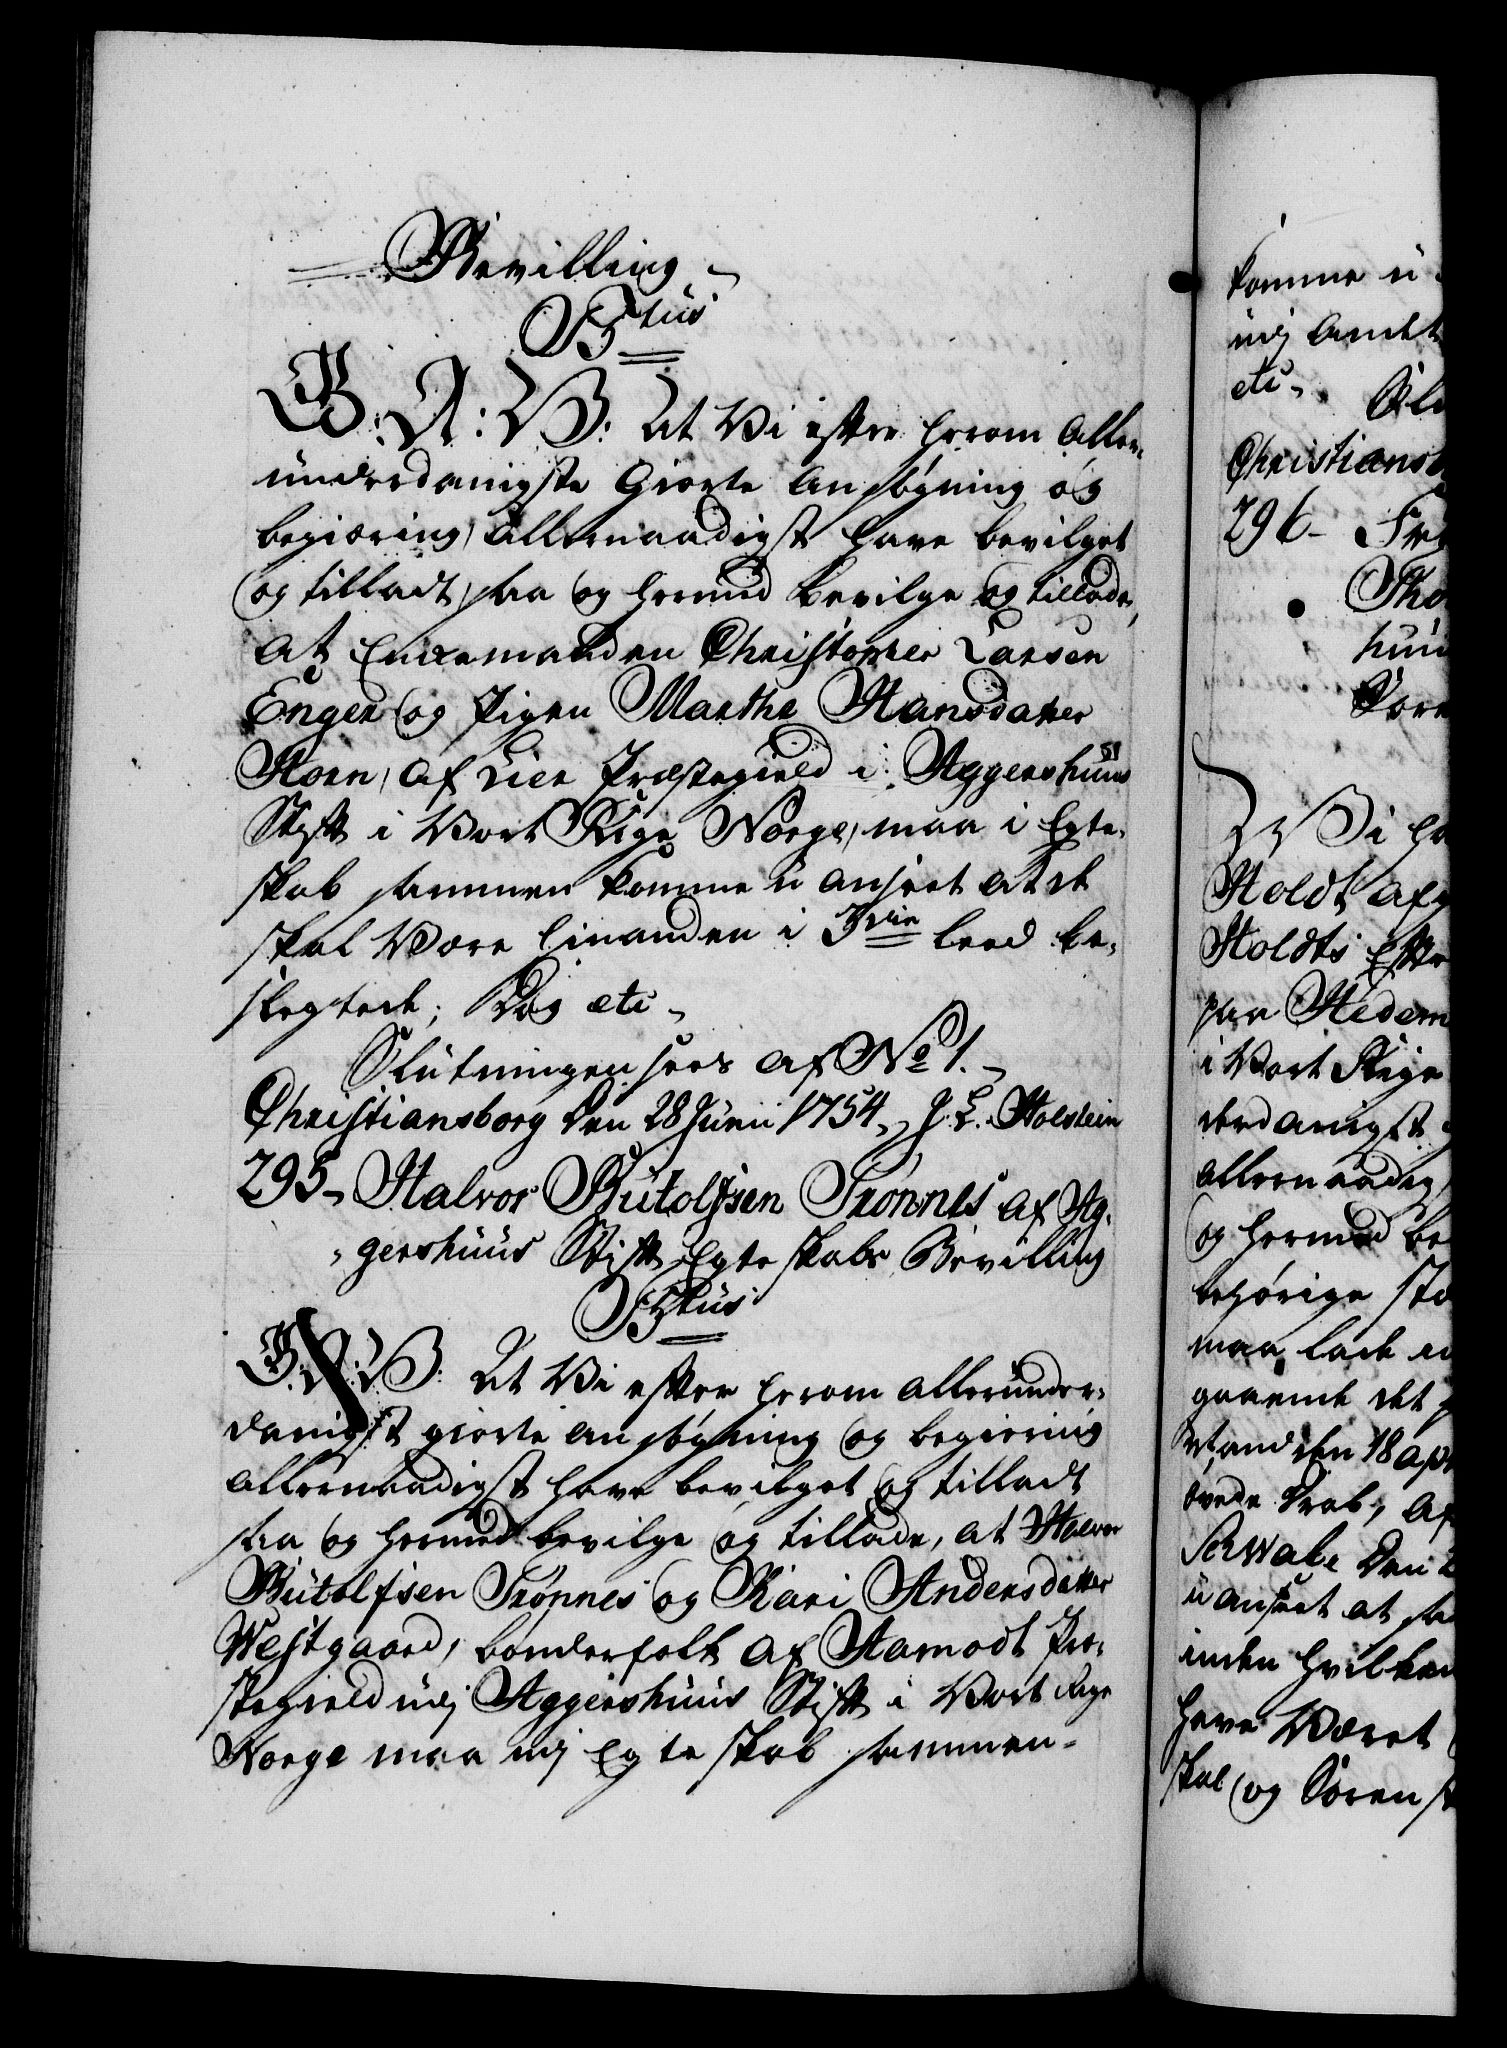 Bevilling
F5tus
G: A: V: At Vi efter herom Aller-
underdanigste Giorte Ansøgning og
begiæring, Allernaadigst have bevilget
og tilladt, saa og hermed bevilge og tillade,
at Enckemanden Christopher Larsen
Enger og Pigen Marthe Hansdatter
Horn, af Lier Præstegield i Aggershuus
Stift i Vort Rige Norge, maa i Egte-
skab sammen komme u anseet at de
skal Være hinanden i 3die Leed be-
slegtede; Dog etc
Slutningen sees af No 1.
Christiansborg den 28 Juni 1754. J. L. Holstein
295 Halvor Butolfsen Trønnes af Ag-
gershuus Stift Egteskabs Bevilling
F5tus
G: A: V: At Vi efter herom allerunder-
danigst giorte ansøgning og begiering
allernaadigst have bevilget og tilladt
saa og hermed bevilge og tillade, at Halvor
Butolfsen Trønnes og Kari Andersdatter
Westgaard, bønderfolk af Aamodt Præ-
stegield udj Aggershuus Stift i Vort Rige
Norge maa udj Egteskab sammen-
komme u
udj Andet
etc
Christiansb
296
Vi ha
Holdt af
Holdts Efter
paa Hedem
i Vort Rige
derdanigst
allernaadig
og hermed be
behørige sta
maa lade
gaaende det
stand den 18 Apr
øvede Drab, af
Schwabe den
u anseet at
inden hvilken
have Været
skal og Søren